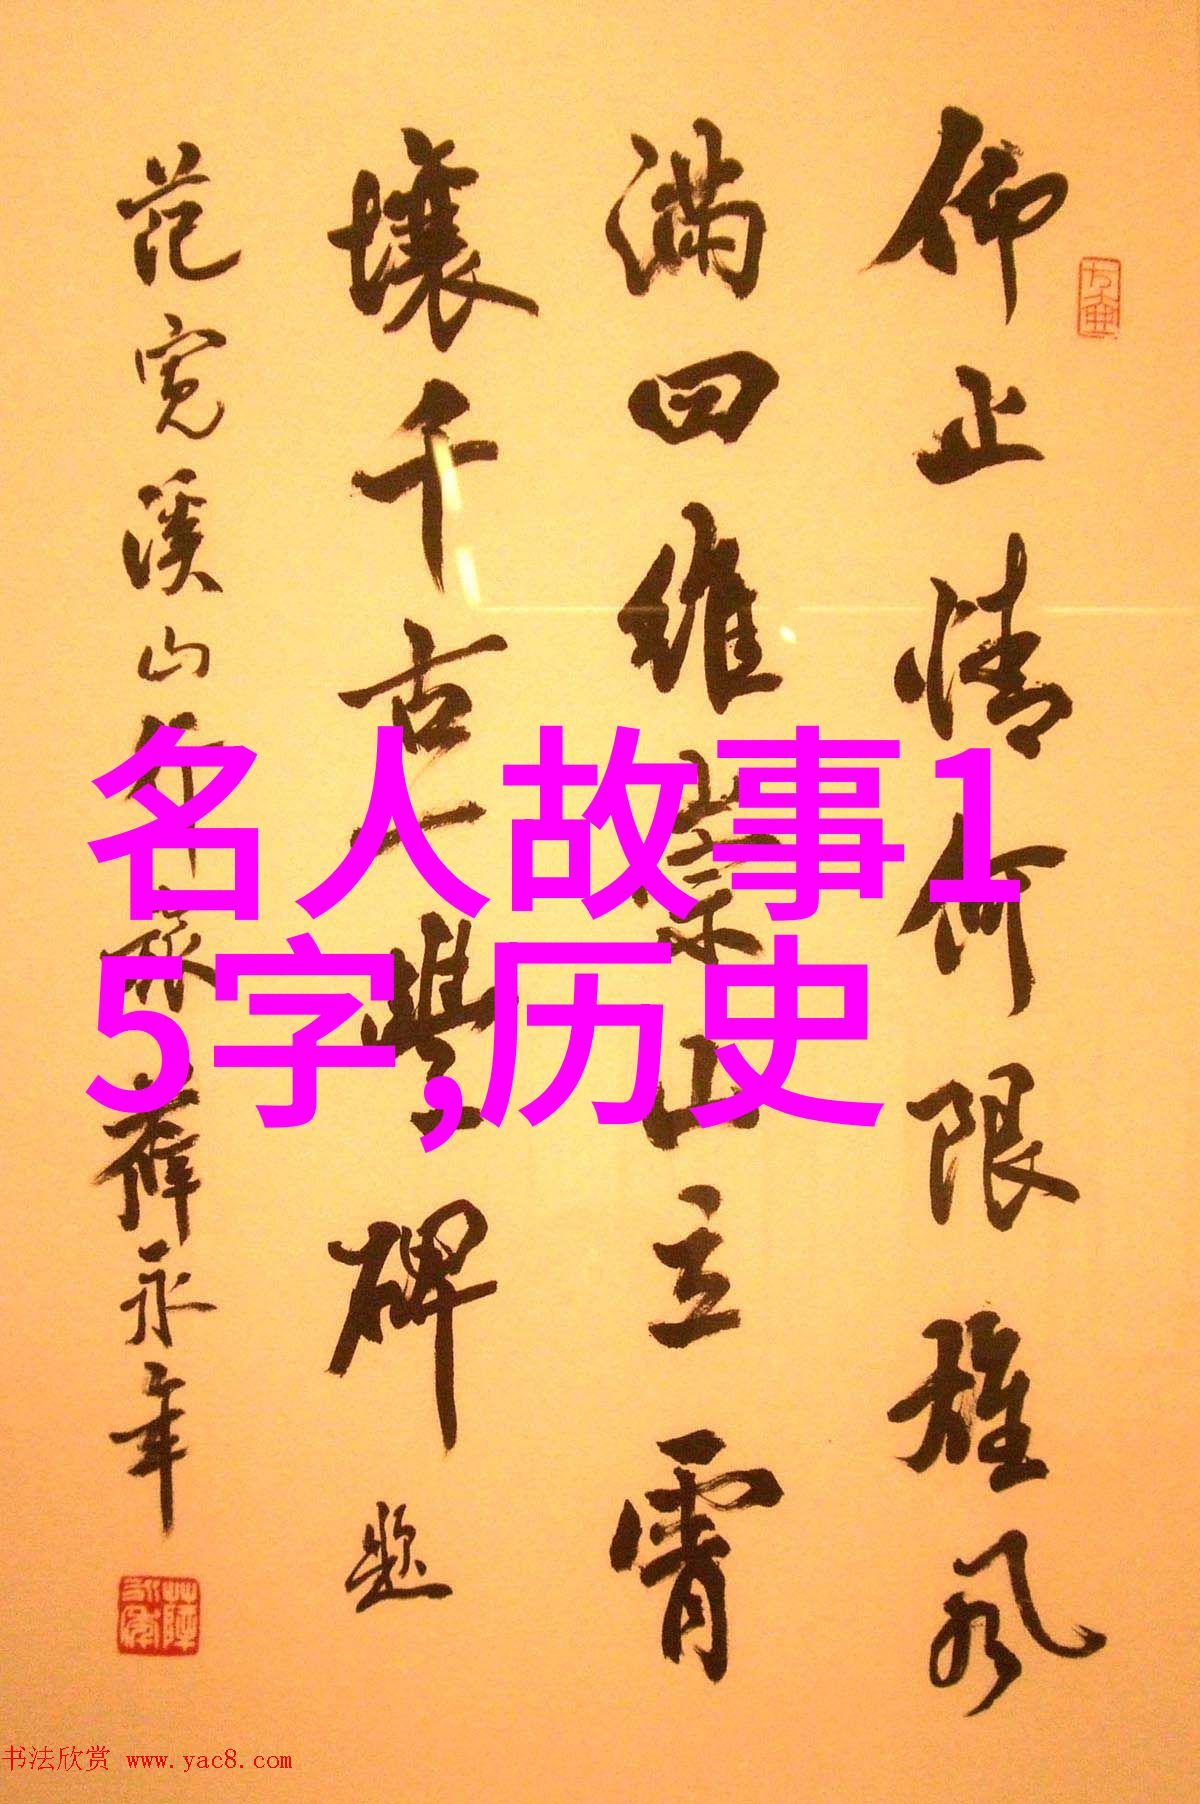 仰止情何限雄风
满四维崇山立霄
壤千古一豐碑题
范宽溪山行旅薛永年
名人故事1
5字,历史
书法欣赏 www.yac8.com